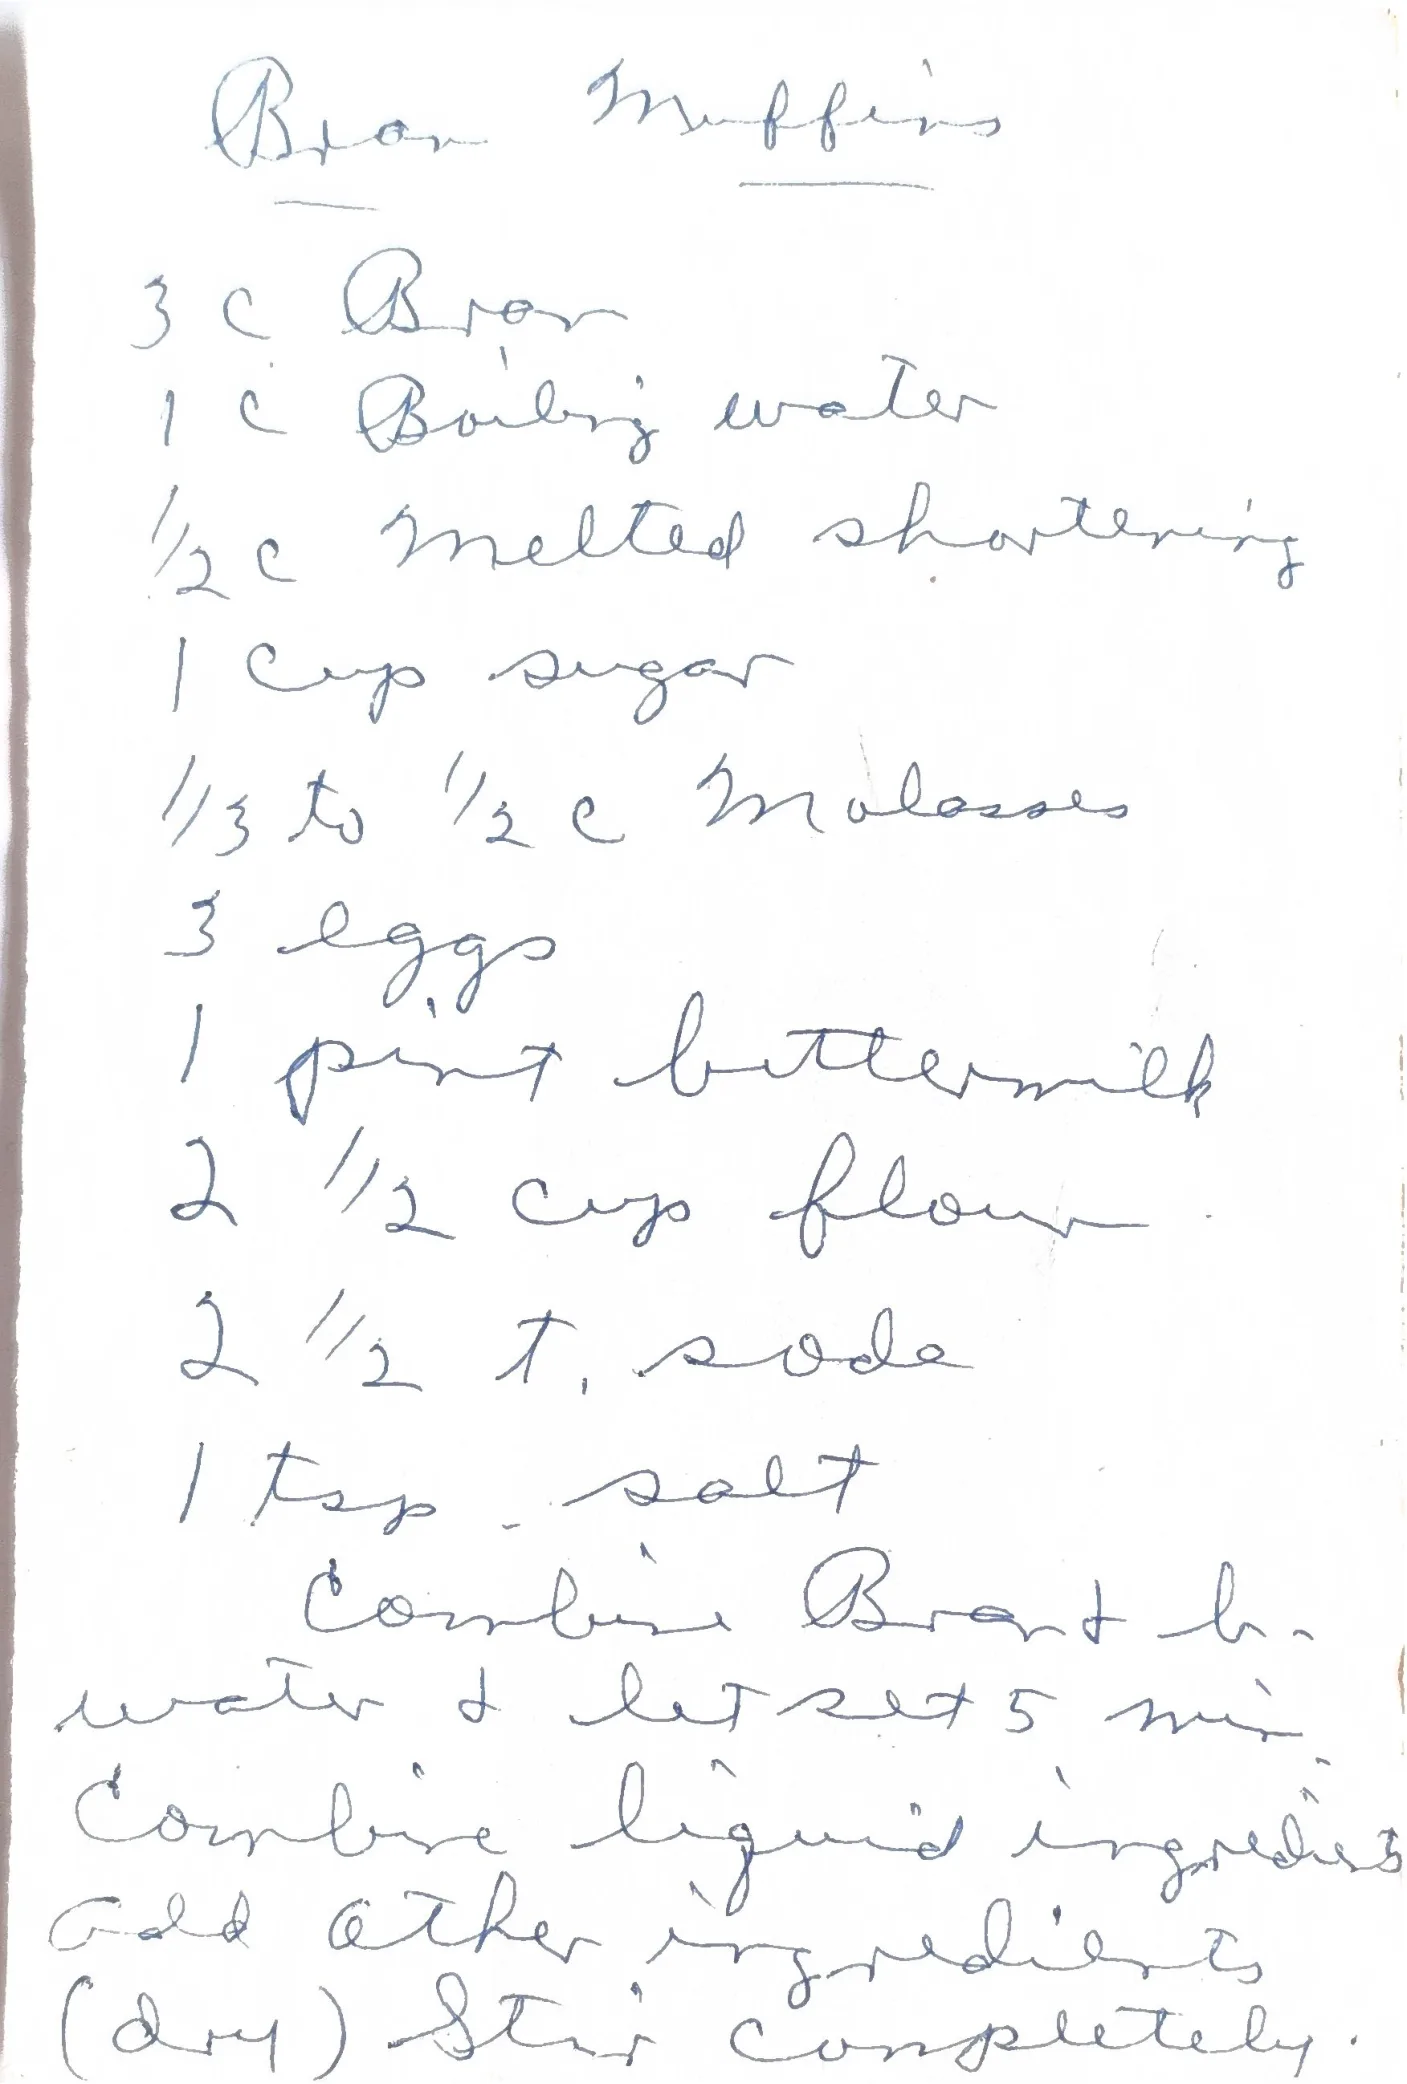 Bran Muffins
3 c Bran
1 c Boiling water
1/2 c Melted shortening
1 Cup sugar
1/3 to 1/2 c Molasses
3 eggs
1 pint buttermilk
2 1/2 cup flour
2 1/2 t. soda
1 tsp salt
Combine Bran & b.
water & let set 5 min
Combine liquid ingredients
add other ingredients
(dry) Stir completely.